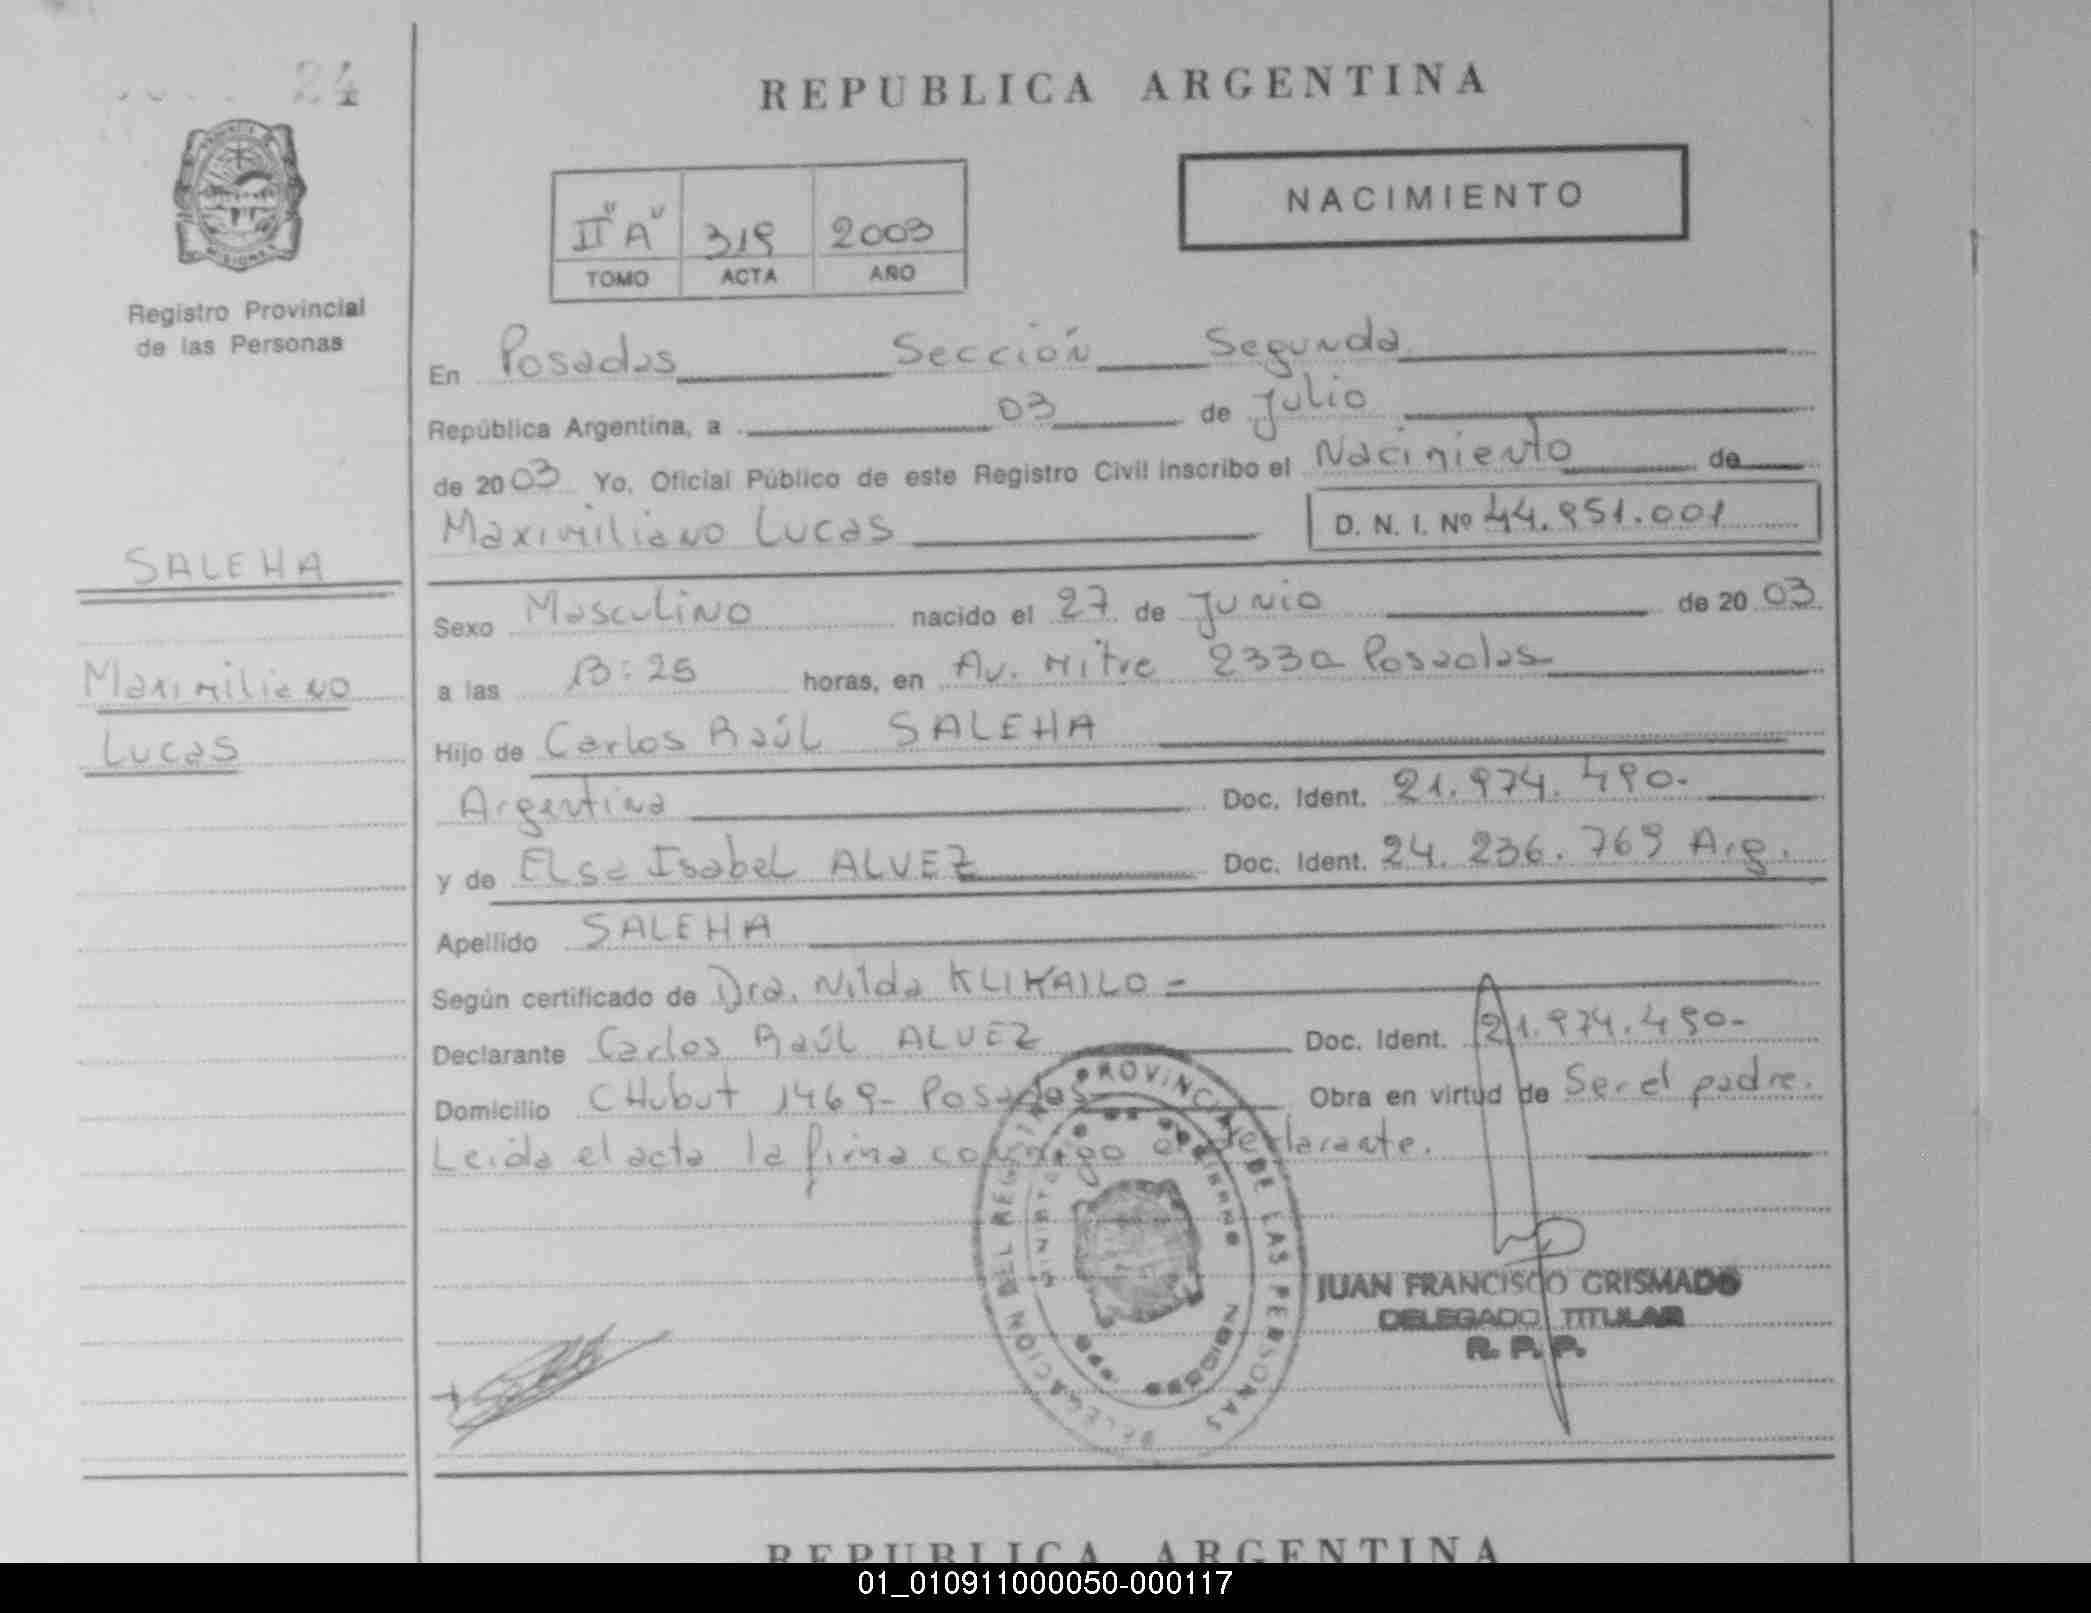 24
REPUBLICA ARGENTINA
NACIMIENTO
II "A" 319 2003
TOMO ACTA AÑO
Registro Provincial
de las Personas
En Posadas Sección Segunda
República Argentina, a 03 de Julio
de 2003 Yo, Oficial Público de este Registro Civil inscribo el Nacimiento de
Maximiliano Lucas D. N. I. Nº 44.951.001
SALEHA
Maximiliano
Lucas
Sexo Masculino nacido el 27 de Junio de 2003
a las 13:25 horas, en Av. Mitre Posadas
Hijo de Carlos Raúl SALEHA
Argentina Doc. Ident. 21.974.490-
y de Elsa Isabel ALVEZ Doc. Ident. 24.236.769 Arg.
Apellido SALEHA
Según certificado de Dra. Nilda
Declarante Carlos Raúl ALVEZ Doc. Ident. 21.974.490-
Domicilio CHubut 1469- Posadas Obra en virtud de Ser el padre.
Leida el acta la firma conmigo el declarante.
DELEGACION DEL REGISTRO PROVINCIAL DE LAS PERSONAS
JUAN FRANCISCO GRISMADO
DELEGADO TITULAR
R. P. P.
REPUBLICA ARGENTINA
01_010911000050-000117